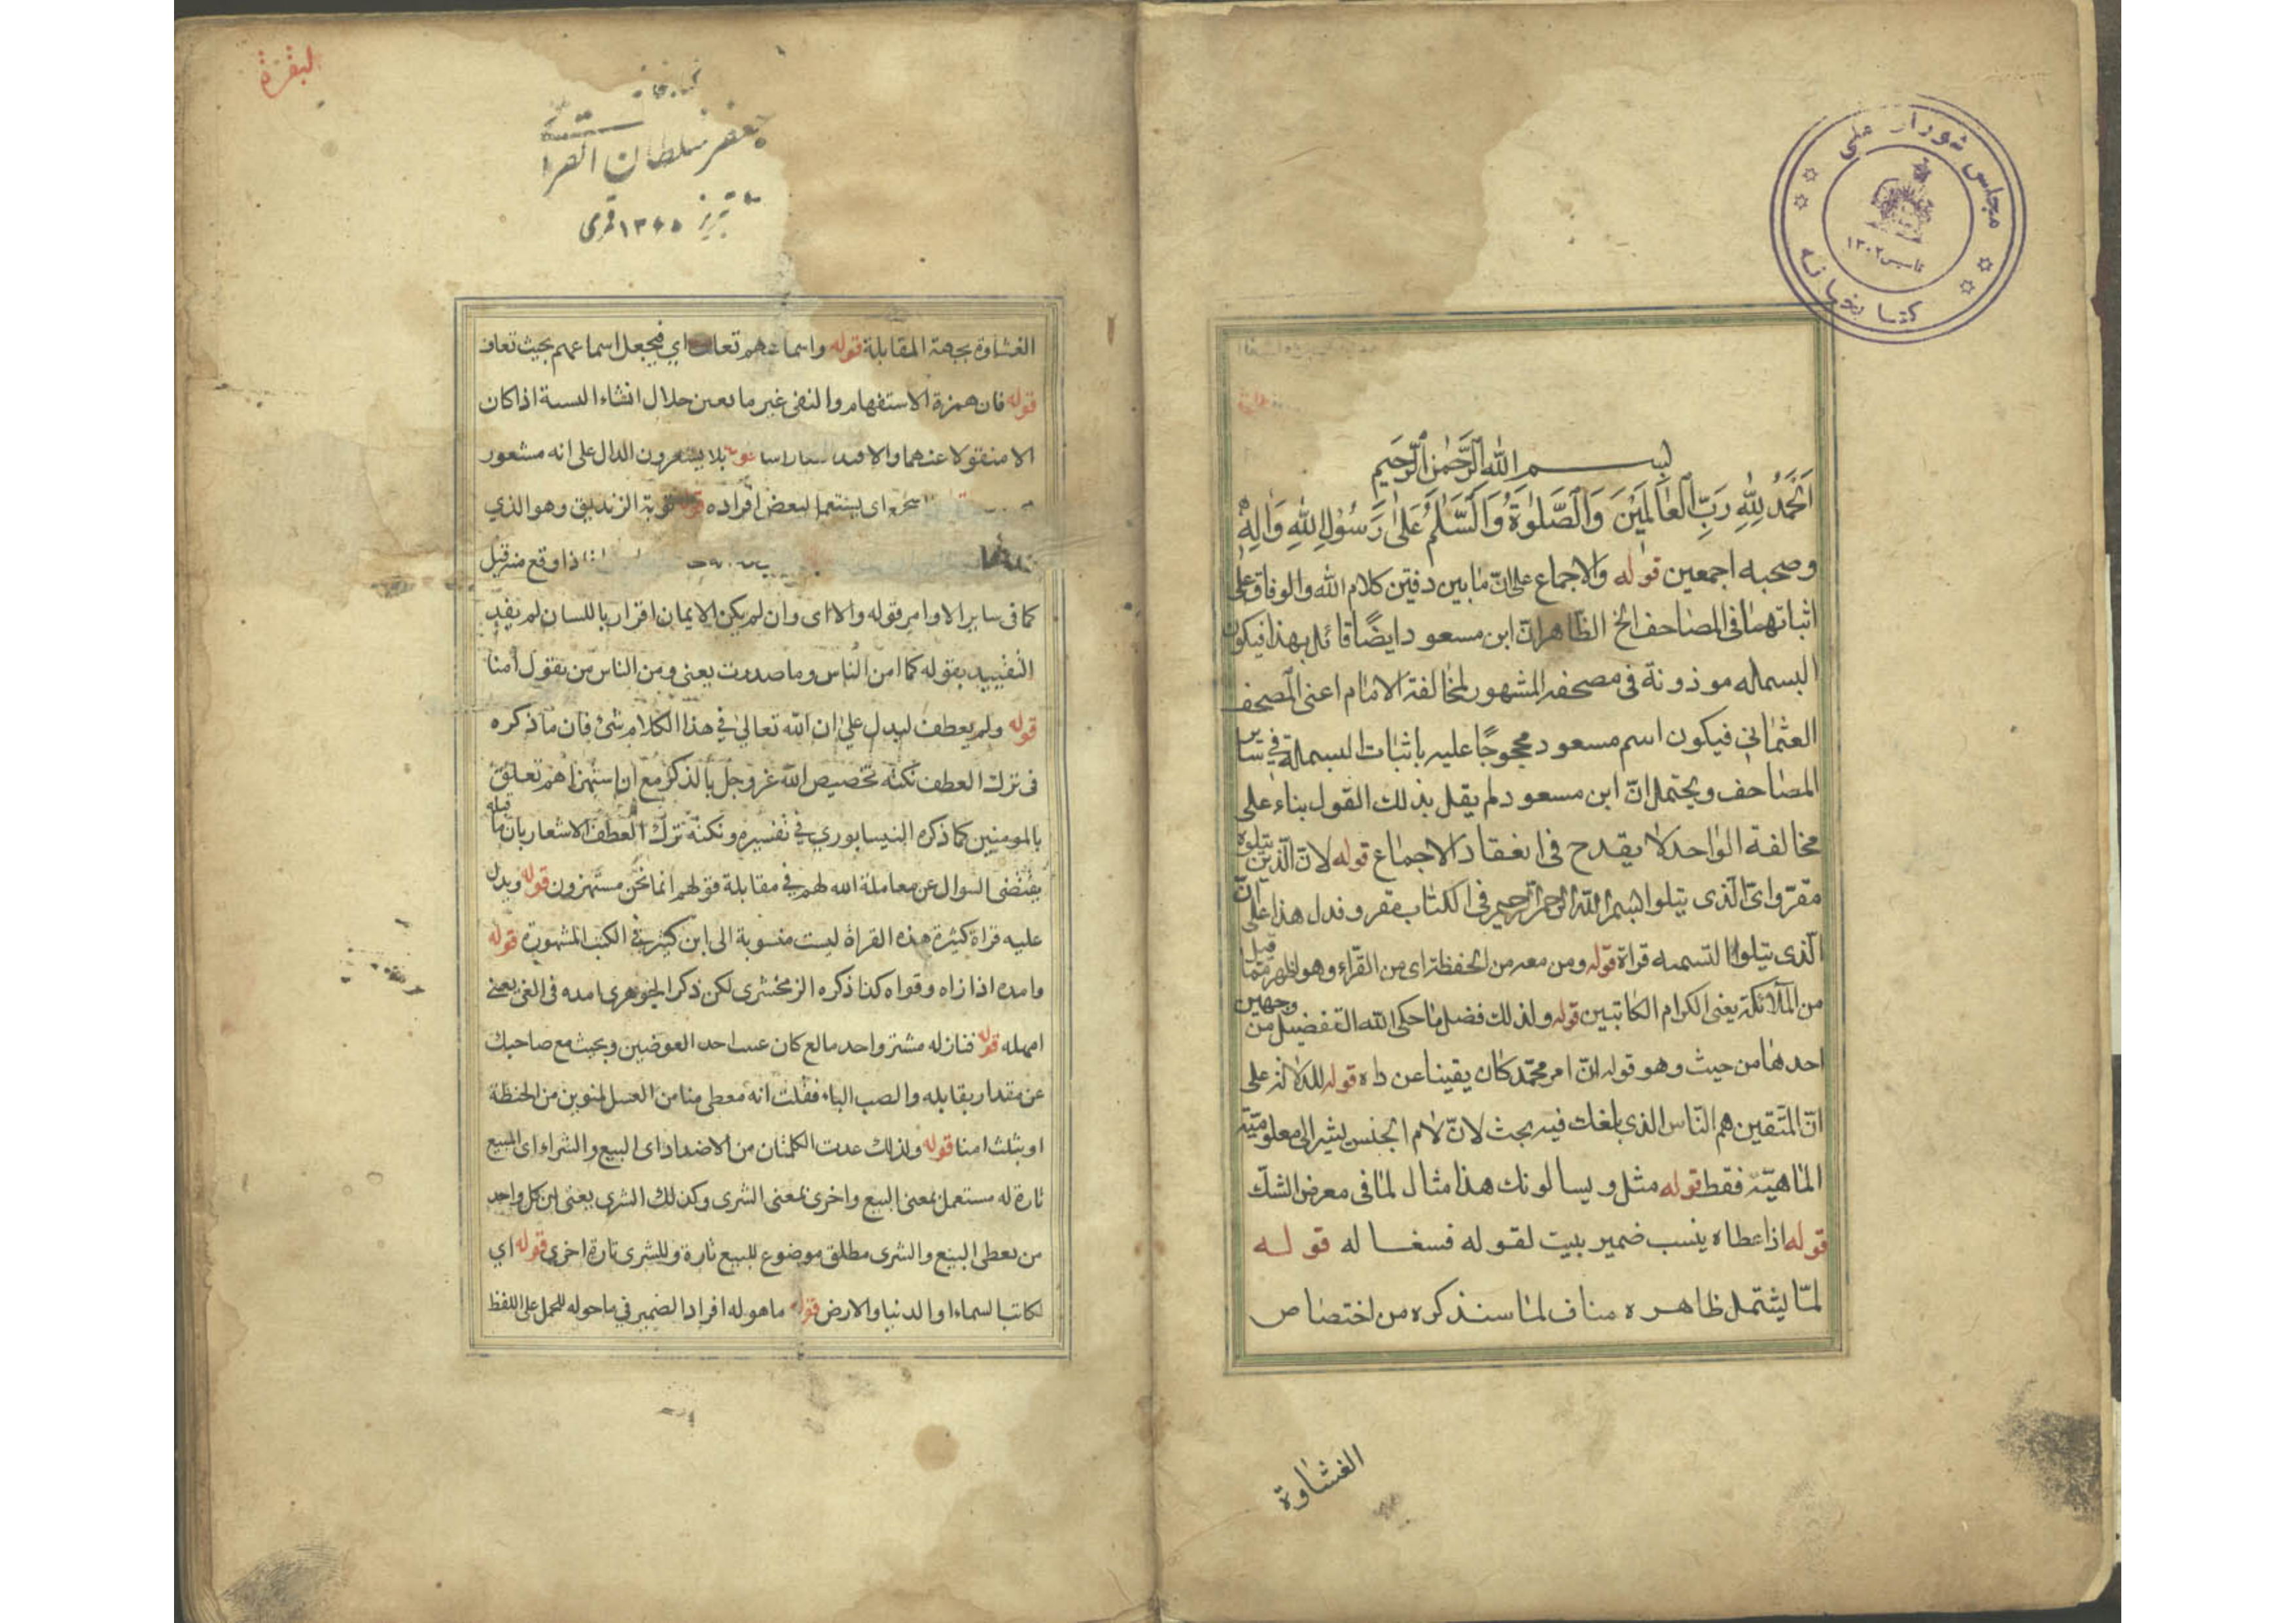 مجلس شورای ملی
تاسیس ۱۳۰۲
کتابخانه
بسم الله الرحمن الرحیم
اَلْحَمْدُ لِلّٰهِ رَبِّ الْعَالَمِيْنَ وَالصَّلٰوةُ وَالسَّلٰمُ عَلٰى رَسُوْلِ اللّٰهِ وَاٰلِهِ
وصحبه اجمعين قوله والاجماع على انّ ما بين دفتين كلام الله والوفاق على
اثباتهما فى المصاحف الخ الظاهر انّ ابن مسعود ايضًا قائل بهذا فيكون
البسمله موذونة فى مصحفه المشهور لمخالفة الامام اعنى المصحف
العثمانى فيكون اسم مسعود محجوجًا عليه باثبات البسملة فى ساير
المصاحف ويحتمل انّ ابن مسعود لم يقل بذلك القول بناء على
مخالفة الواحد لا يقدح فى انعقاد الاجماع قوله لانّ الّذين يتلوه
مقرّو اىّ الّذى يتلوا بسم الله الرحمن الرحيم فى الكتاب مقرو فدل هذا على انّ
الّذى يتلوا التسميه قراة قوله ومن معه من الحفظة اى من القرّاء وهو اظهر ممّا قيل
من الملائكة يعنى الكرام الكاتبين قوله ولذلك فضل ما حكى الله التفضيل من وجهين
احدها من حيث وهو قوله انّ امر محمّد كان يقينا عن داه قوله للدلالة على
انّ المتّقين هم النّاس الذى بلغك فيه بحث لانّ لام الجنس يشير الى معلوميّة
الماهيّة فقط قوله مثل ويسالونك هذا مثال لما فى معرض الشك
قوله اذ اعطاه ينسب ضمير بيت لقوله فسغا له قوله
لمّا يشتمل ظاهره مناف لما سنذكره من اختصاص
الغشاوة
البقرة
جعفر سلطان القرا
تبریز ۱۳۶۵ قمری
الغشاوة بجهة المقابلة قوله واسماعهم تعاف اى فيجعل اسماعهم بحيث تعاف
قوله فان همزة الاستفهام والنفى غير ما بعين حلال انشاء النسبة اذا كان
الا منقولا عندهما والا بلا يشعرون الدال على انه مشعور
اى يستعما لبعض افراده قوله توبة الزنديق وهو الذي
ذا وقع منه قيل
كما فى ساير الاوامر قوله والا اى وان لم يكن الايمان اقرار باللسان لم يفد
التقييد بقوله كما امن الناس وما صدرت يعنى ومن الناس من يقول امنا
قوله ولم يعطف ليدل على ان الله تعالى في هذا الكلام شئ فان ما ذكره
فى ترك العطف نكتة تخصيص الله عز وجل بالذكر مع ان استهزاهم تعلق
بالمومنين كما ذكره النيسابوري في تفسيره ونكتة ترك العطف الاشعار بان ما قبله
يقتضى السوال عن معاملة الله لهم في مقابلة قولهم انما نحن مستهزون قوله ويدل
عليه قراة كثيرة هذه القراة ليست منسوبة الى ابن كثير في الكتب المشهورة قوله
وامده اذا زاه وقواه كذا ذكره الزمخشرى لكن ذكر الجوهرى امده فى الغى يعنى
امهله قوله فنازله مشتر واحد مالع كان عسا احد العوضين وبحث مع صاحبك
عن مقدار بقابله والصب الباء فقلت انه معطى منا من العسل لمنوين من الحنطة
او بثلث امنا قوله ولذلك عدت الكلمتان من الاضداد اى البيع والشراء اى البيع
تارة له مستعمل بمعنى البيع واخرى بمعنى الشرى وكذلك الشرى يعنى ان كل واحد
من يعطى البيع والشرى مطلق موضوع للبيع تارة وللشرى تارة اخرى قوله اي
لكاتبا لسماء او الدنيا والارض قوله ما هو له افراد الضمير في ما حوله للحمل على اللفظ